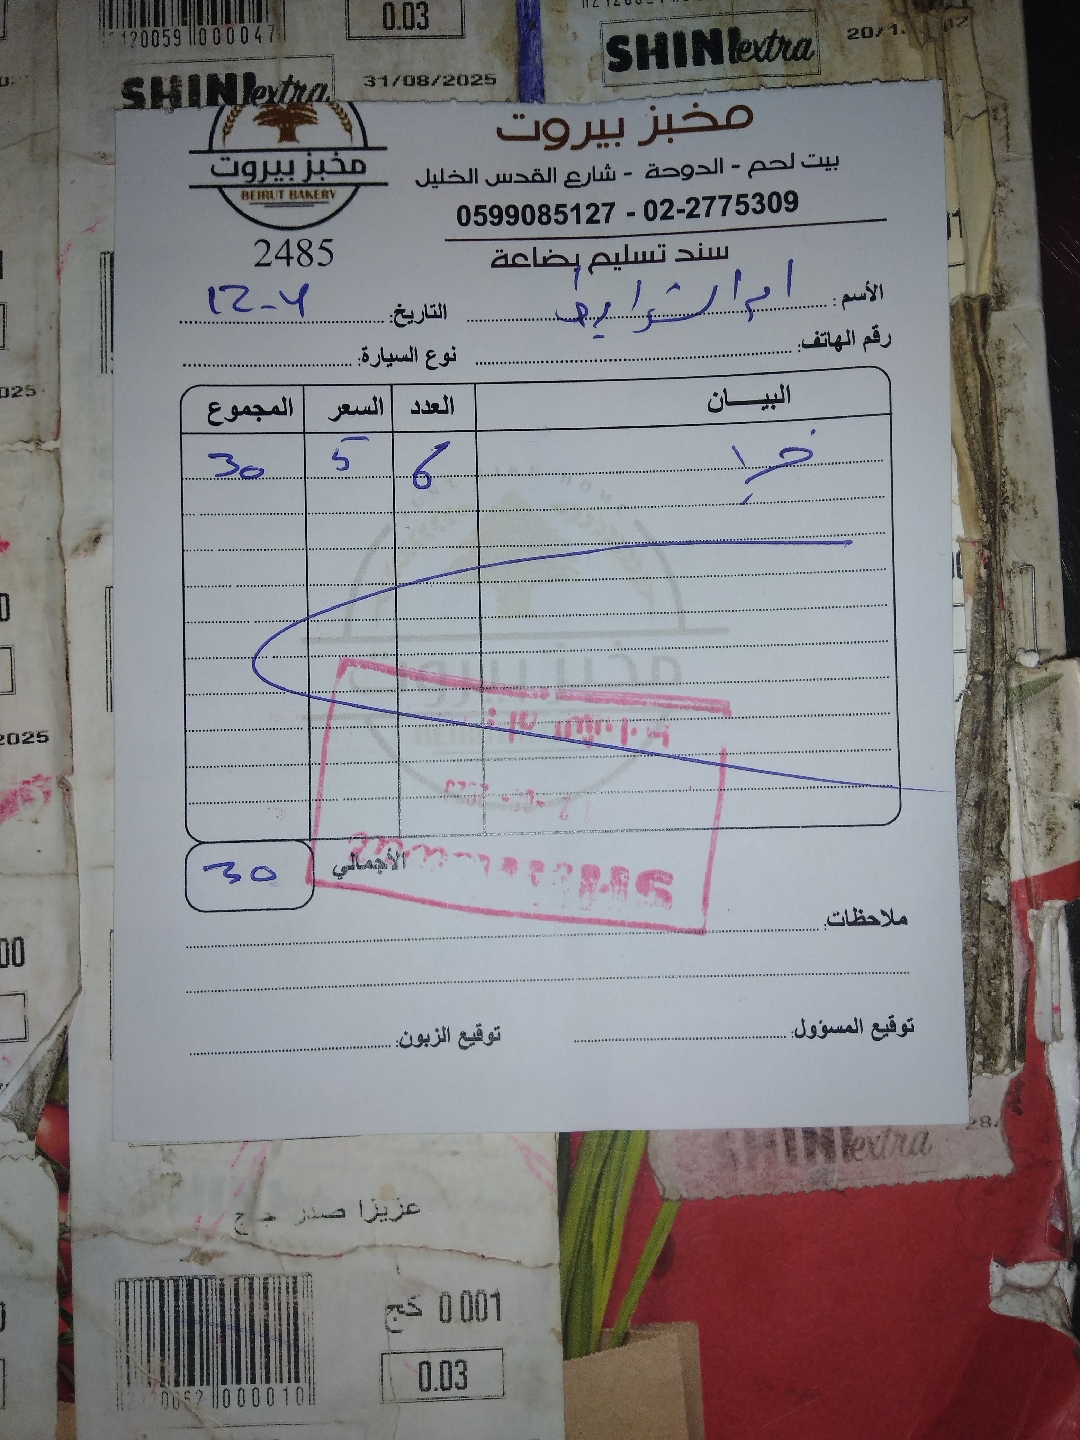 2120059 000047
0.03
SHINI extra
31/08/2025
SHINI extra
مخبز بيروت
BEIRUT BAKERY
2485
مخبز بيروت
بيت لحم - الدوحة - شارع القدس الخليل
0599085127 - 02-2775309
سند تسليم بضاعة
الأسم: ام الشرايط
التاريخ: 12-4
رقم الهاتف:
نوع السيارة:
البيـــان العدد السعر المجموع
6 5 30
مخبز بيروت
الأجمالي 30
ملاحظات:
توقيع المسؤول:
توقيع الزبون:
SHINI extra
28.
0.001 كج
0.03
000010